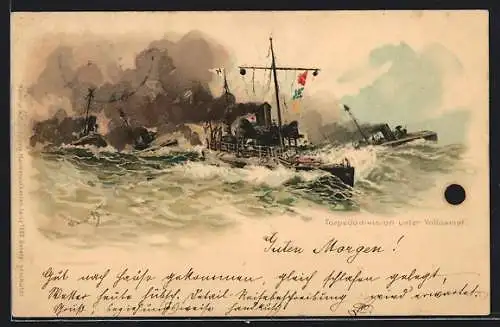 Torpedodivision unter Volldampf.
Guten Morgen!
Gut nach Hause gekommen, gleich schlafen gelegt,
Wetter heute hübsch. Detail Reisebeschreibung wird erwartet.
Gruß, beziehungsweise